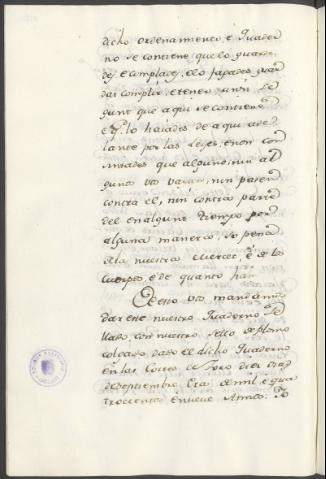 dicho ordenamiento e Quader
no se contiene que lo guarde
des e complades, e lo fagades guar
dar complir, e tener segun se
gunt que aqui se contiene
e q. lo hayades de aqui ade
lante por las Leyes, e non con
sintades que alguno, nin al
gunos vos vayan, nin pasen
contra el, nin contra parte
del en algunt tiempo por
alguna manera, so pena
de la nuestra merced, e de los
cuerpos e de quanto han.
De esto vos mandamos
dar este nuestro Quaderno se
llado con nuestro sello de plomo
colgado, dado el dicho Quaderno
en las Cortes de Toro diez dias
de Septiembre Era de mil, e qua
trocientos e nueve Annos. Yo